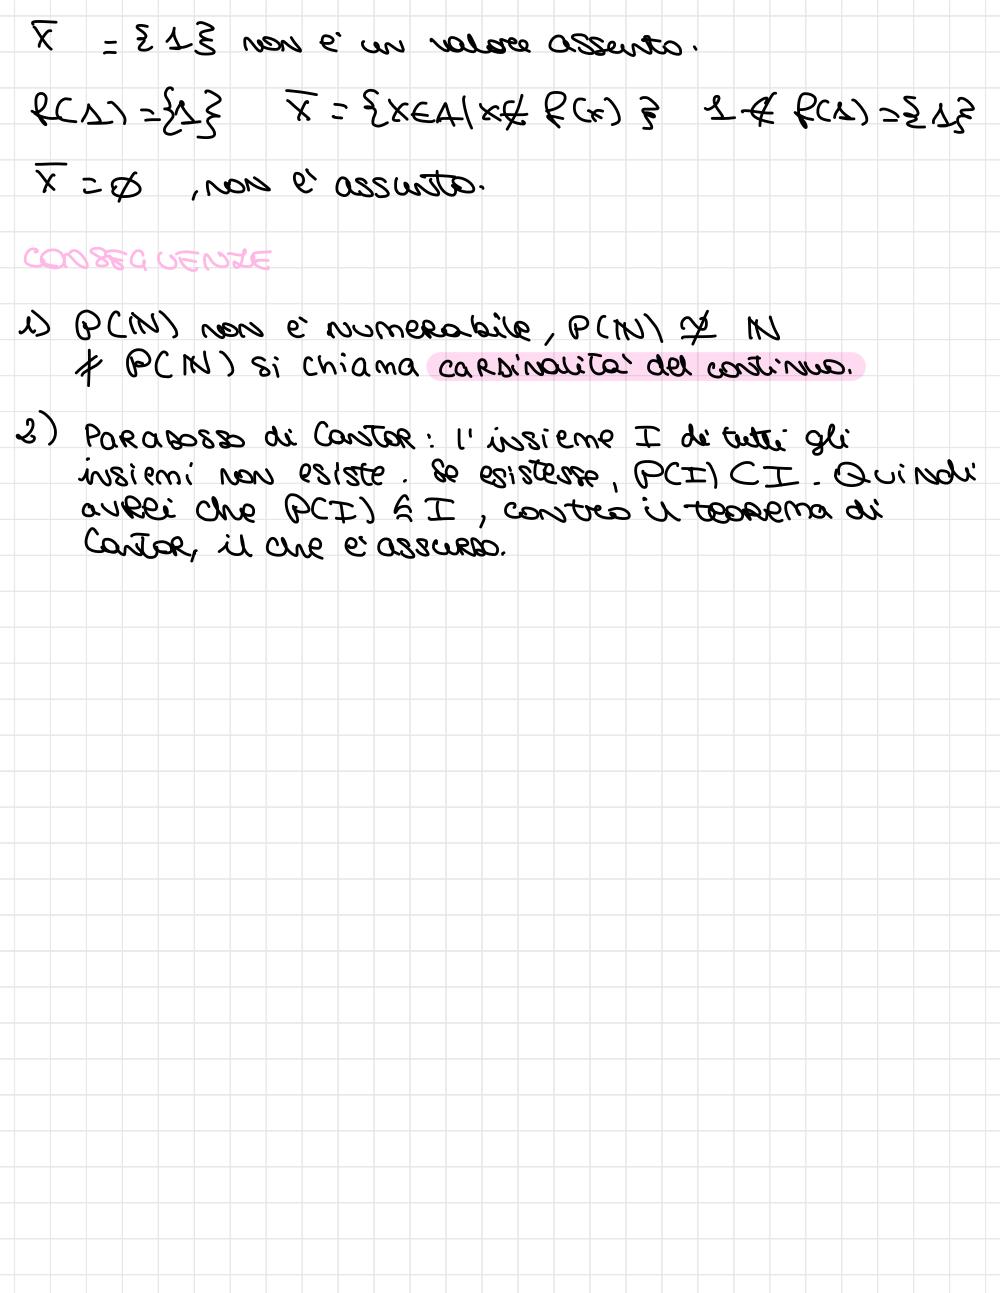 X̅ = {1} non è un valore assunto.
f(1)={1} X̅ = {x∈A|x∉ f(x) } 1 ∉ f(1)={1}
X̅ = ∅ , non è assunto.
CONSEGUENZE
1) P(ℕ) non è numerabile, P(ℕ) ≄ ℕ
# P(ℕ) si chiama cardinalità del continuo.
2) Paradosso di Cantor: l'insieme I di tutti gli
insiemi non esiste. Se esistesse, P(I) ⊂ I. Quindi
avrei che P(I) ≤ I, contro il teorema di
Cantor, il che è assurdo.